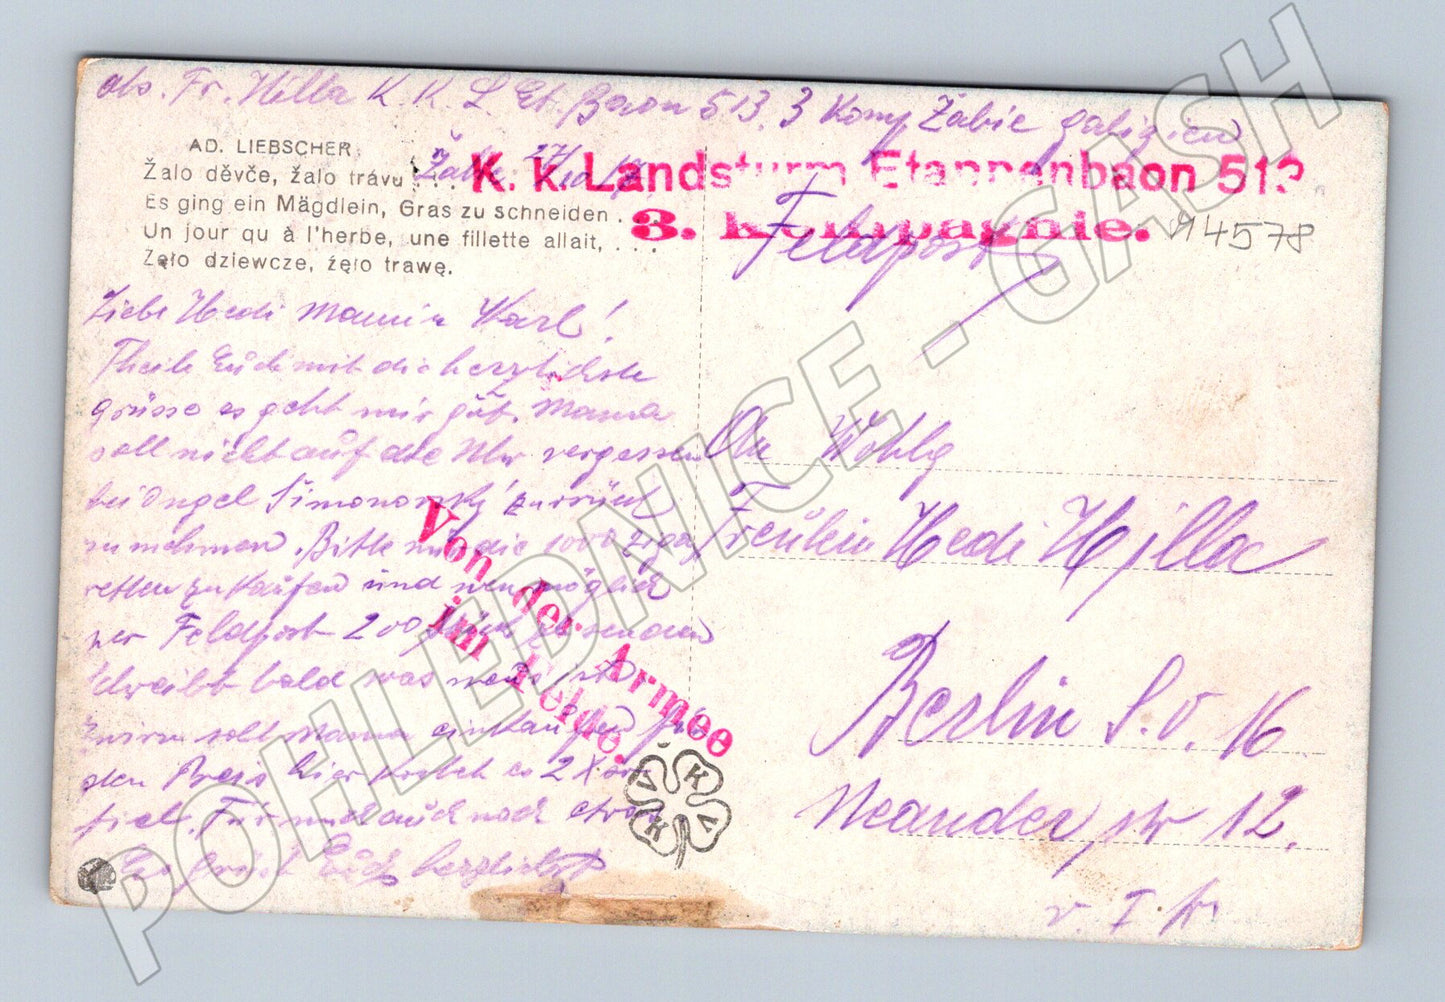 abs. Fr. Hilla K. K. L Et. Baon 513. 3 Komp Żabie galizien
AD. LIEBSCHER:
Žalo děvče, žalo trávu . . .
Es ging ein Mägdlein, Gras zu schneiden . . .
Un jour qu à l'herbe, une fillette allait, . . .
Żęło dziewcze, żęło trawę.
K. k. Landsturm Etappenbaon 513
3. Kompagnie.
Feldpost
94578
Liebe Hedi Mama u Karl!
Theile Euch mit die herzlichste
grüsse es geht mir gut. Mama
soll nicht auf die Uhr vergessen
bei Simonovský zurück
zu nehmen. Bitte mir die 1000 Ziga
retten zu kaufen und wen möglich
per Feldpost 200 Stück zu senden
schreibt bald was neues ist
Zwirn soll Mama einkaufen für
den Preis hier kostet es 2 X
Für mich auch noch etwas
Es grüsst Euch herzlichst
Von der Armee
im Felde.
An Wohlg
Freulein Hedi Hilla
Berlin S. O. 16
Neander str 12.
v. I. H
V K K V
POHLEDNICE - GASH